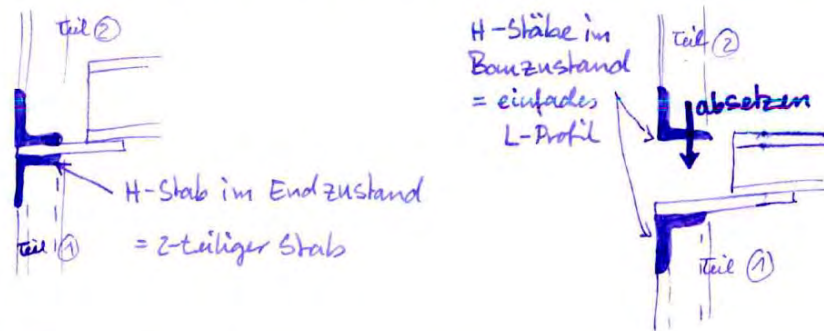 Teil ②
H-Stab im Endzustand
= 2-teiliger Stab
Teil ①
H-Stäbe im
Bauzustand
= einfades
L-Profil
Teil ②
absetzen
Teil ①